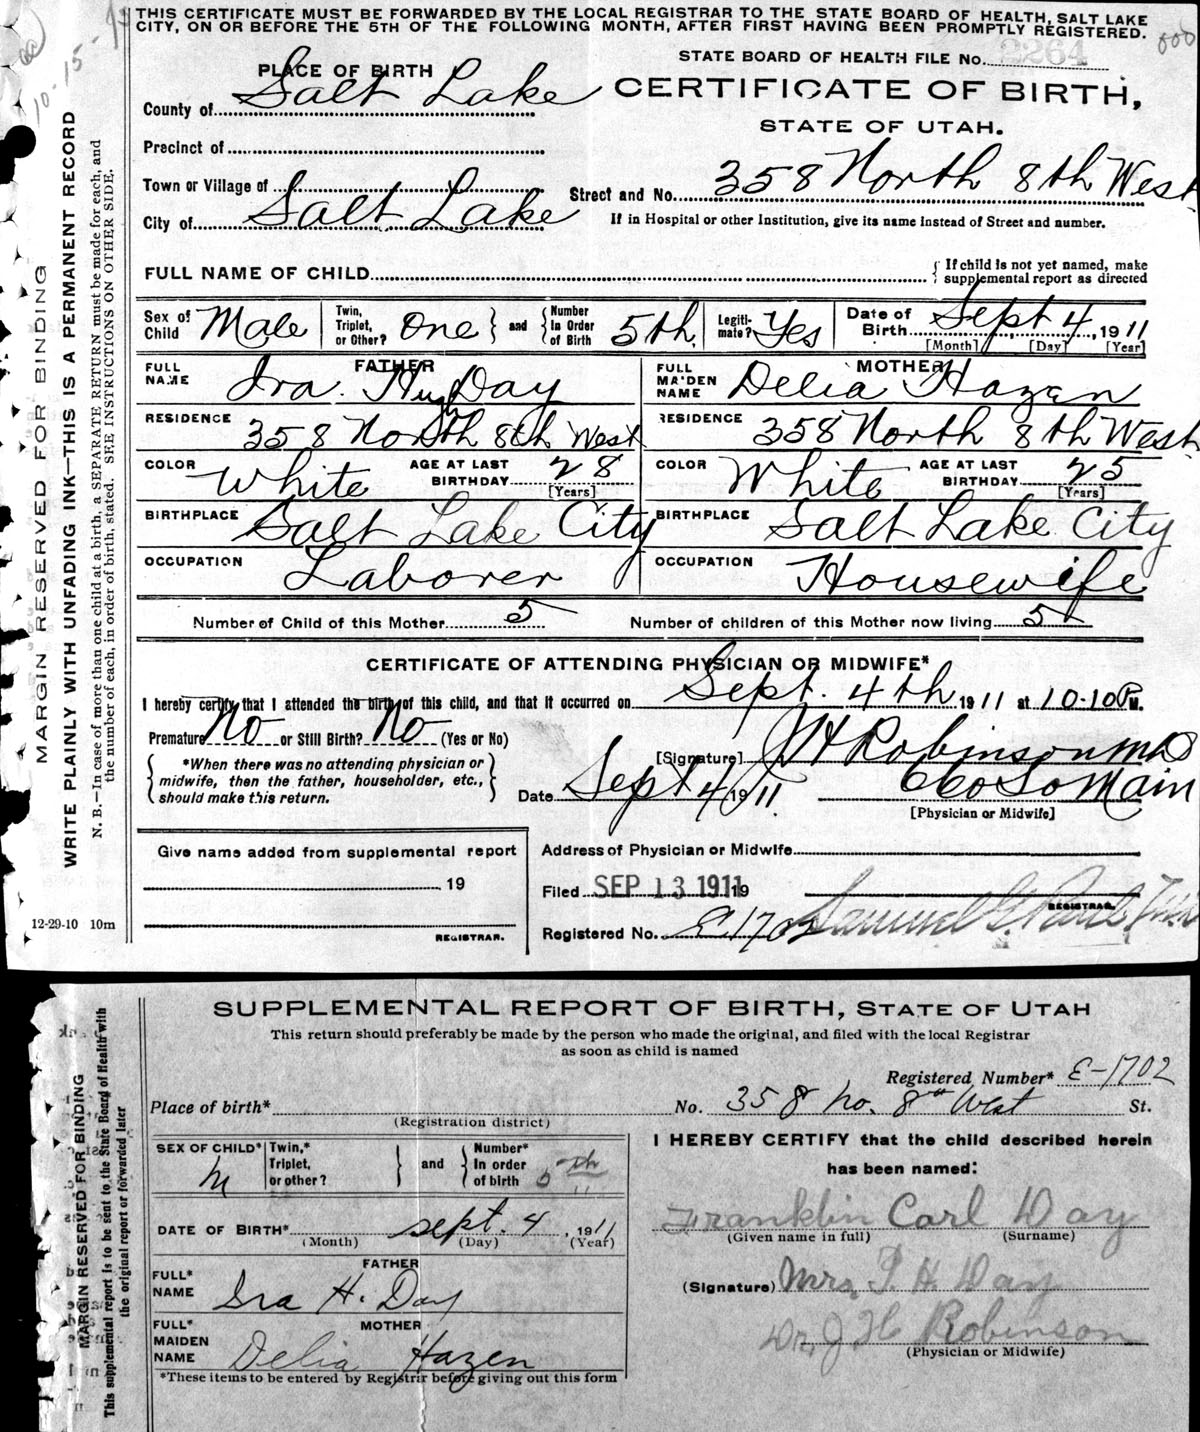 THIS CERTIFICATE MUST BE FORWARDED BY THE LOCAL REGISTRAR TO THE STATE BOARD OF HEALTH, SALT LAKE
CITY, ON OR BEFORE THE 5TH OF THE FOLLOWING MONTH, AFTER FIRST HAVING BEEN PROMPTLY REGISTERED.
10-15-
STATE BOARD OF HEALTH FILE No. 2264
PLACE OF BIRTH
County of Salt Lake
CERTIFICATE OF BIRTH,
STATE OF UTAH.
Precinct of
Town or Village of
Street and No. 358 North 8th West
City of Salt Lake
If in Hospital or other Institution, give its name instead of Street and number.
FULL NAME OF CHILD
{ If child is not yet named, make
supplemental report as directed
Sex of Child Male
Twin, Triplet, or Other? One } and { Number In Order of Birth 5th
Legiti-mate? Yes
Date of Birth Sept 4, 1911
[Month] [Day] [Year]
FATHER
FULL NAME Ira. Hugh Day
MOTHER
FULL MAIDEN NAME Delia Hazen
RESIDENCE 358 North 8th West
RESIDENCE 358 North 8th West
COLOR White AGE AT LAST BIRTHDAY 28 [Years]
COLOR White AGE AT LAST BIRTHDAY 25 [Years]
BIRTHPLACE Salt Lake City
BIRTHPLACE Salt Lake City
OCCUPATION Laborer
OCCUPATION Housewife
Number of Child of this Mother 5
Number of children of this Mother now living 5
CERTIFICATE OF ATTENDING PHYSICIAN OR MIDWIFE*
I hereby certify that I attended the birth of this child, and that it occurred on Sept. 4th 1911 at 10-10 P.M.
Premature No or Still Birth? No (Yes or No)
*When there was no attending physician or
midwife, then the father, householder, etc.,
should make this return.
[Signature] J H Robinson MD
Date Sept 4 1911
So Main
[Physician or Midwife]
Give name added from supplemental report
19
REGISTRAR.
Address of Physician or Midwife
Filed SEP 13 1911 19
REGISTRAR.
Registered No. E1702
Samuel G. Paul
MARGIN RESERVED FOR BINDING
WRITE PLAINLY WITH UNFADING INK—THIS IS A PERMANENT RECORD
N. B.—In case of more than one child at a birth, a SEPARATE RETURN must be made for each, and
the number of each, in order of birth, stated. SEE INSTRUCTIONS ON OTHER SIDE.
12-29-10 10m
SUPPLEMENTAL REPORT OF BIRTH, STATE OF UTAH
This return should preferably be made by the person who made the original, and filed with the local Registrar
as soon as child is named
Registered Number* E-1702
Place of birth*
(Registration district)
No. 358 No. 8th West St.
SEX OF CHILD* M
Twin,* Triplet, or other? } and { Number* In order of birth 5th
I HEREBY CERTIFY that the child described herein
has been named:
DATE OF BIRTH* Sept. 4, 1911
(Month) (Day) (Year)
Franklin Carl Day
(Given name in full) (Surname)
FATHER
FULL* NAME Ira H. Day
(Signature) Mrs. I. H. Day
MOTHER
FULL* MAIDEN NAME Delia Hazen
Dr. J H Robinson
(Physician or Midwife)
*These items to be entered by Registrar before giving out this form
MARGIN RESERVED FOR BINDING
This supplemental report is to be sent to the State Board of Health with
the original report or forwarded later